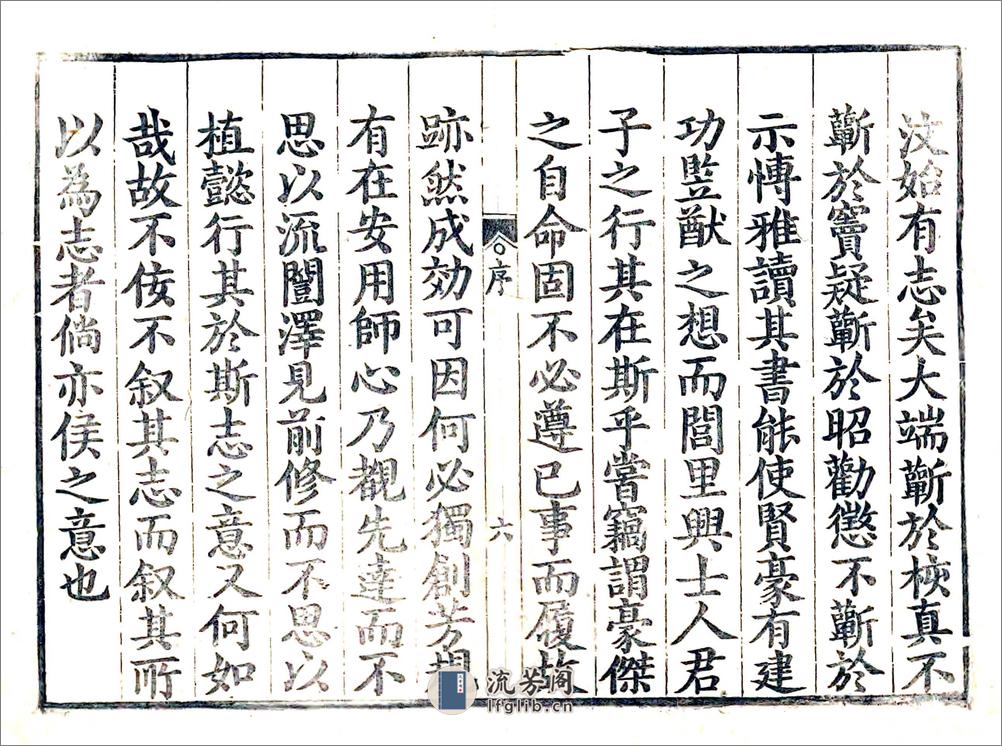 汶始有志矣大端蘄於核真不
蘄於竇疑蘄於昭勸懲不蘄於
示愽雅讀其書能使賢豪有建
功監猷之想而閭里興士人君
子之行其在斯乎嘗竊謂豪傑
之自命固不必遵已事而履故
序
六
跡然成効可因何必獨創芳規
有在安用師心乃覩先達而不
思以流闓澤見前修而不思以
植懿行其於斯志之意又何如
哉故不佞不叙其志而叙其所
以為志者倘亦侯之意也
流芳阁
lfglib.cn